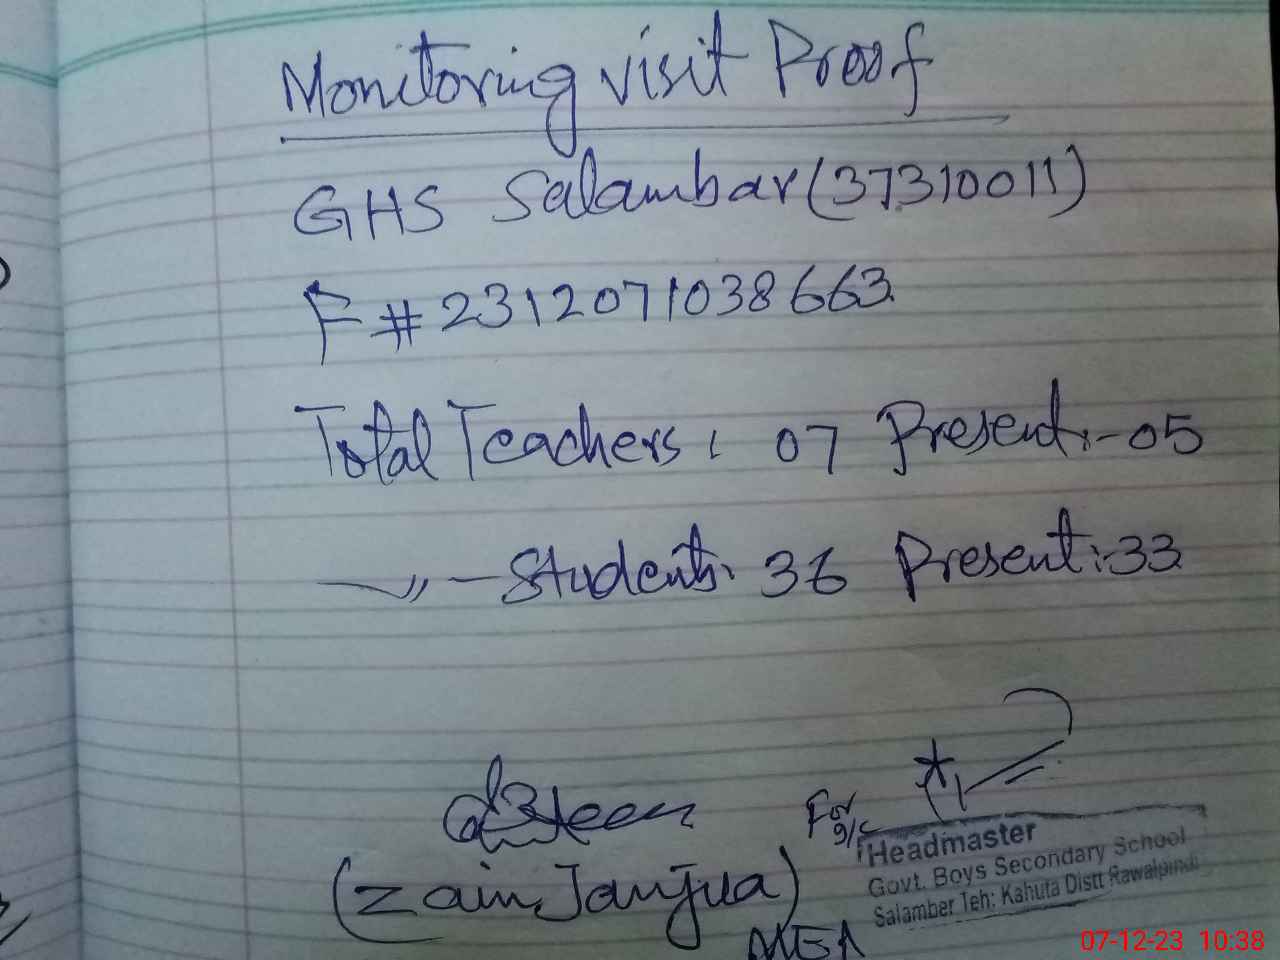 Monitoring visit Proof
GHS Salambar (37310011)
F # 2312071038663
Total Teachers: 07 Present:- 05
—〃— Students: 36 Present:- 33
For
I/C
Headmaster
Govt. Boys Secondary School
Salamber Teh: Kahuta Distt Rawalpindi
(Zain Janjua)
MEA
07-12-23 10:38